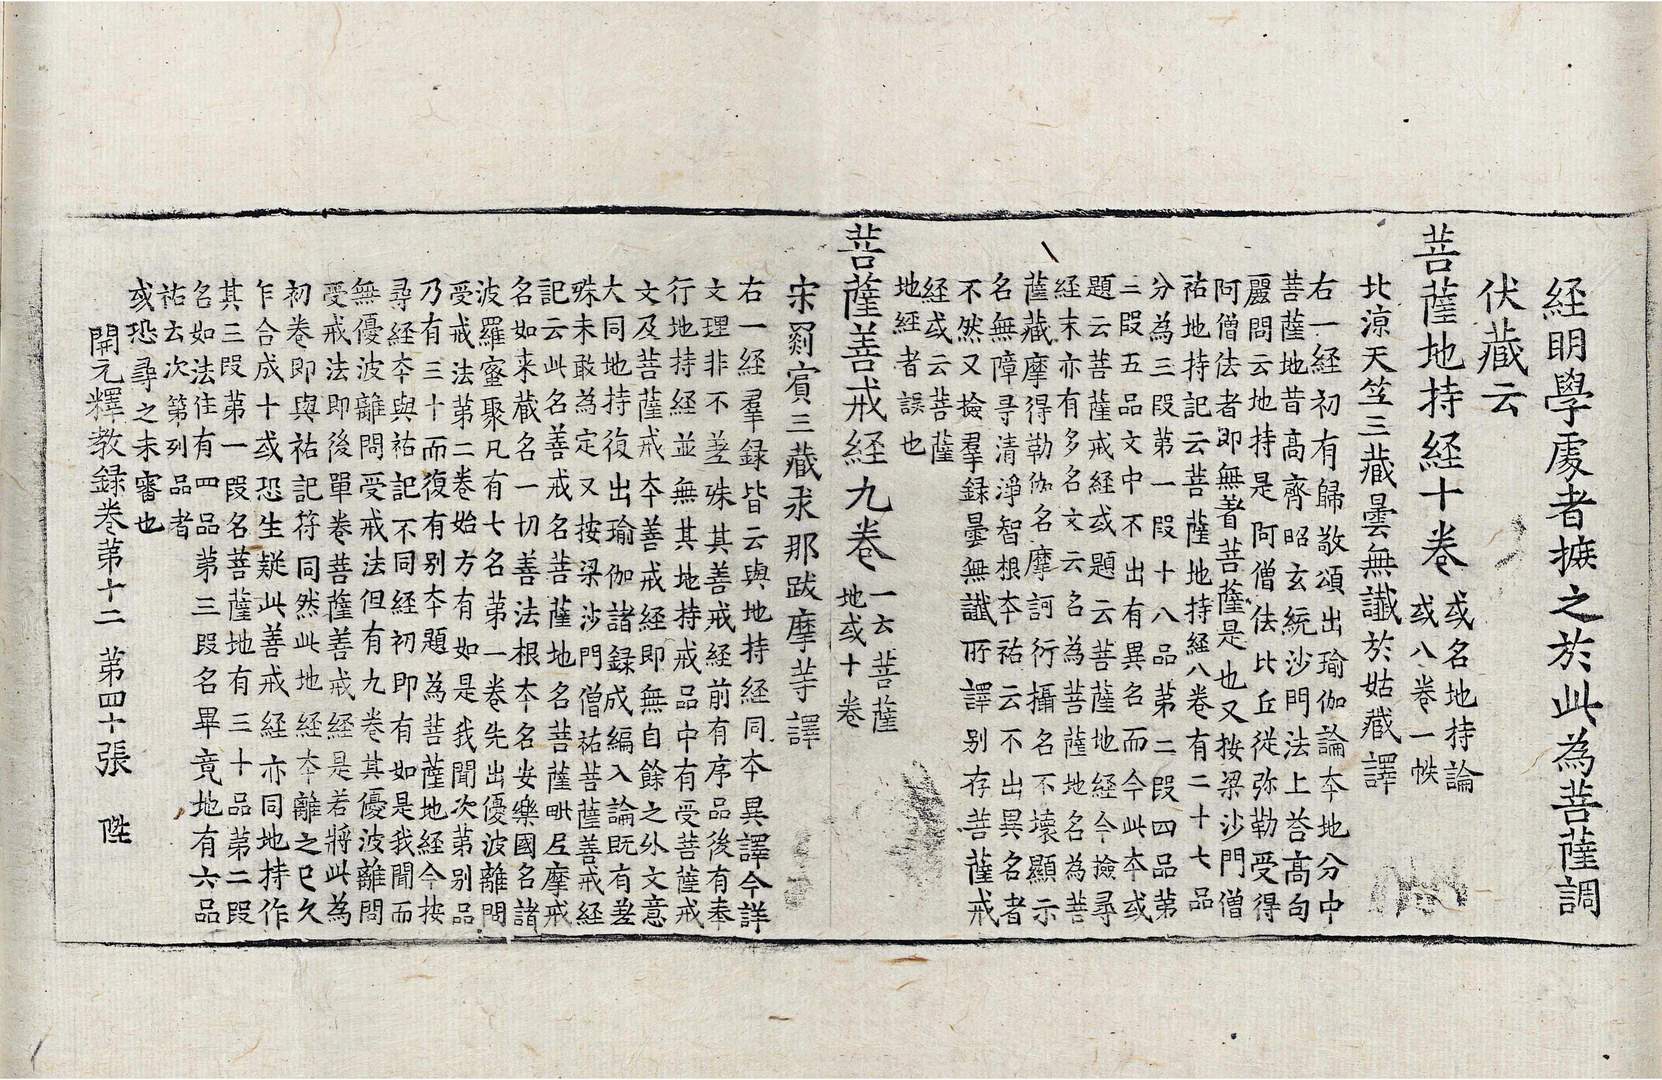 経明學處者摭之於此為菩薩調
伏藏云
菩薩地持経十卷 或名地持論
或八卷一帙
北涼天竺三藏曇無讖於姑臧譯
右一経初有歸敬頌出瑜伽論夲地分中
菩薩地昔高齊昭玄統沙門法上荅高句
麗問云地持是阿僧佉比丘從弥勒受得
阿僧佉者即無著菩薩是也又按梁沙門僧
祐地持記云菩薩地持経八卷有二十七品
分為三段第一段十八品第二段四品第
三段五品文中不出有異名而今此夲或
題云菩薩戒経或題云菩薩地経今撿尋
経末亦有多名文云名為菩薩地名為菩
薩藏摩得勒伽名摩訶衍攝名不壞顯示
名無障㝵清淨智根夲祐云不出異名者
不然又撿羣録曇無讖所譯别存菩薩戒
経或云菩薩
地経者誤也
菩薩善戒経九卷 一云菩薩
地或十卷
宋罽賓三藏求那跋摩等譯
右一経羣録皆云與地持経同夲異譯今詳
文理非不差殊其善戒経前有序品後有奉
行地持経並無其地持戒品中有受菩薩戒
文及菩薩戒夲善戒経即無自餘之外文意
大同地持復出瑜伽諸録成編入論既有差
殊未敢為定又按梁沙門僧祐菩薩善戒経
記云此名善戒名菩薩地名菩薩毗尼摩戒
名如来藏名一切善法根夲名安樂國名諸
波羅蜜聚凡有七名第一卷先出優波離問
受戒法第二卷始方有如是我聞次第列品
乃有三十而復有别夲題為菩薩地経今按
尋経夲與祐記不同経初即有如是我聞而
無優波離問受戒法但有九卷其優波離問
受戒法即後單卷菩薩善戒経是若將此為
初卷即與祐記符同然此地経夲離之已久
乍合成十或恐生疑此善戒経亦同地持作
其三段第一段名菩薩地有三十品第二段
名如法住有四品第三段名畢竟地有六品
祐云次第列品者
或恐尋之未審也
開元釋教録卷第十二 第四十張